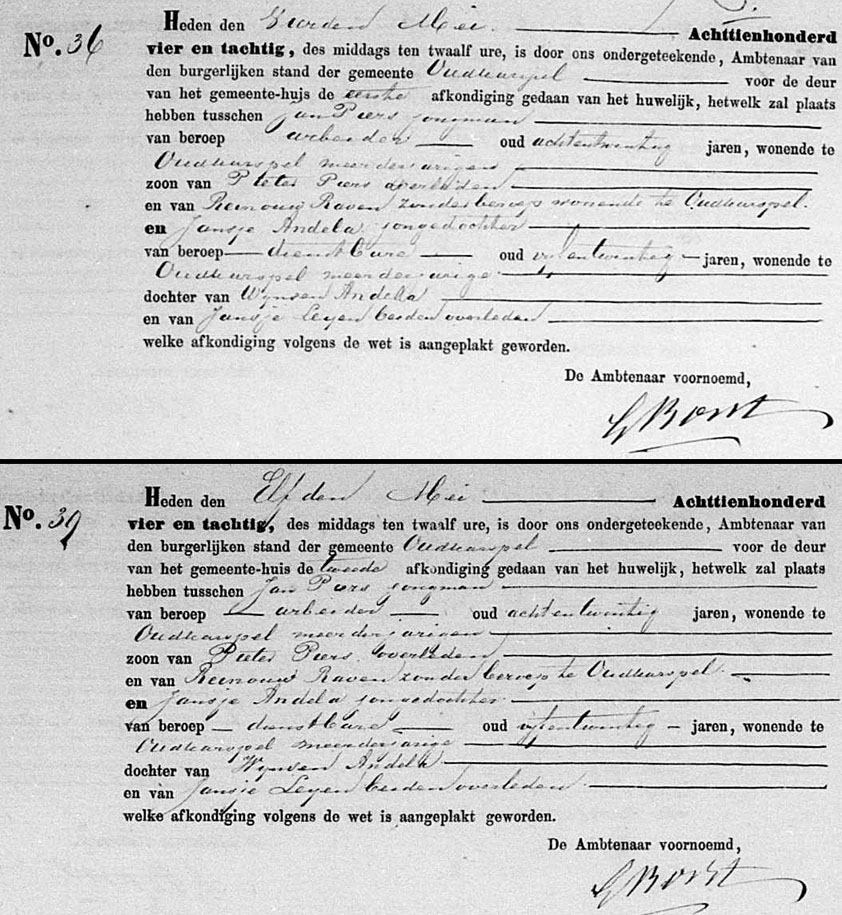 No. 36
Heden den Vierden Mei Achttienhonderd
vier en tachtig, des middags ten twaalf ure, is door ons ondergeteekende, Ambtenaar van
den burgerlijken stand der gemeente Oudkarspel voor de deur
van het gemeente-huis de eerste afkondiging gedaan van het huwelijk, hetwelk zal plaats
hebben tusschen Jan Piers jongman
van beroep arbeider oud achtentwintig jaren, wonende te
Oudkarspel meerderjarigen
zoon van Pieter Piers overleden
en van Reinouw Raven zonder beroep wonende te Oudkarspel.
en Jansje Andela jongedochter
van beroep dienstbare oud vijfentwintig jaren, wonende te
Oudkarspel meerderjarige
dochter van Wynsen Andela
en van Jansje Leyen beiden overleden
welke afkondiging volgens de wet is aangeplakt geworden.
De Ambtenaar voornoemd,
Borst
No. 39
Heden den Elfden Mei Achttienhonderd
vier en tachtig, des middags ten twaalf ure, is door ons ondergeteekende, Ambtenaar van
den burgerlijken stand der gemeente Oudkarspel voor de deur
van het gemeente-huis de tweede afkondiging gedaan van het huwelijk, hetwelk zal plaats
hebben tusschen Jan Piers jongman
van beroep arbeider oud achtentwintig jaren, wonende te
Oudkarspel meerderjarigen
zoon van Pieter Piers overleden
en van Reinouw Raven zonder beroep te Oudkarspel
en Jansje Andela jongedochter
van beroep dienstbare oud vijfentwintig jaren, wonende te
Oudkarspel meerderjarige
dochter van Wynsen Andela
en van Jansje Leyen beiden overleden
welke afkondiging volgens de wet is aangeplakt geworden.
De Ambtenaar voornoemd,
Borst